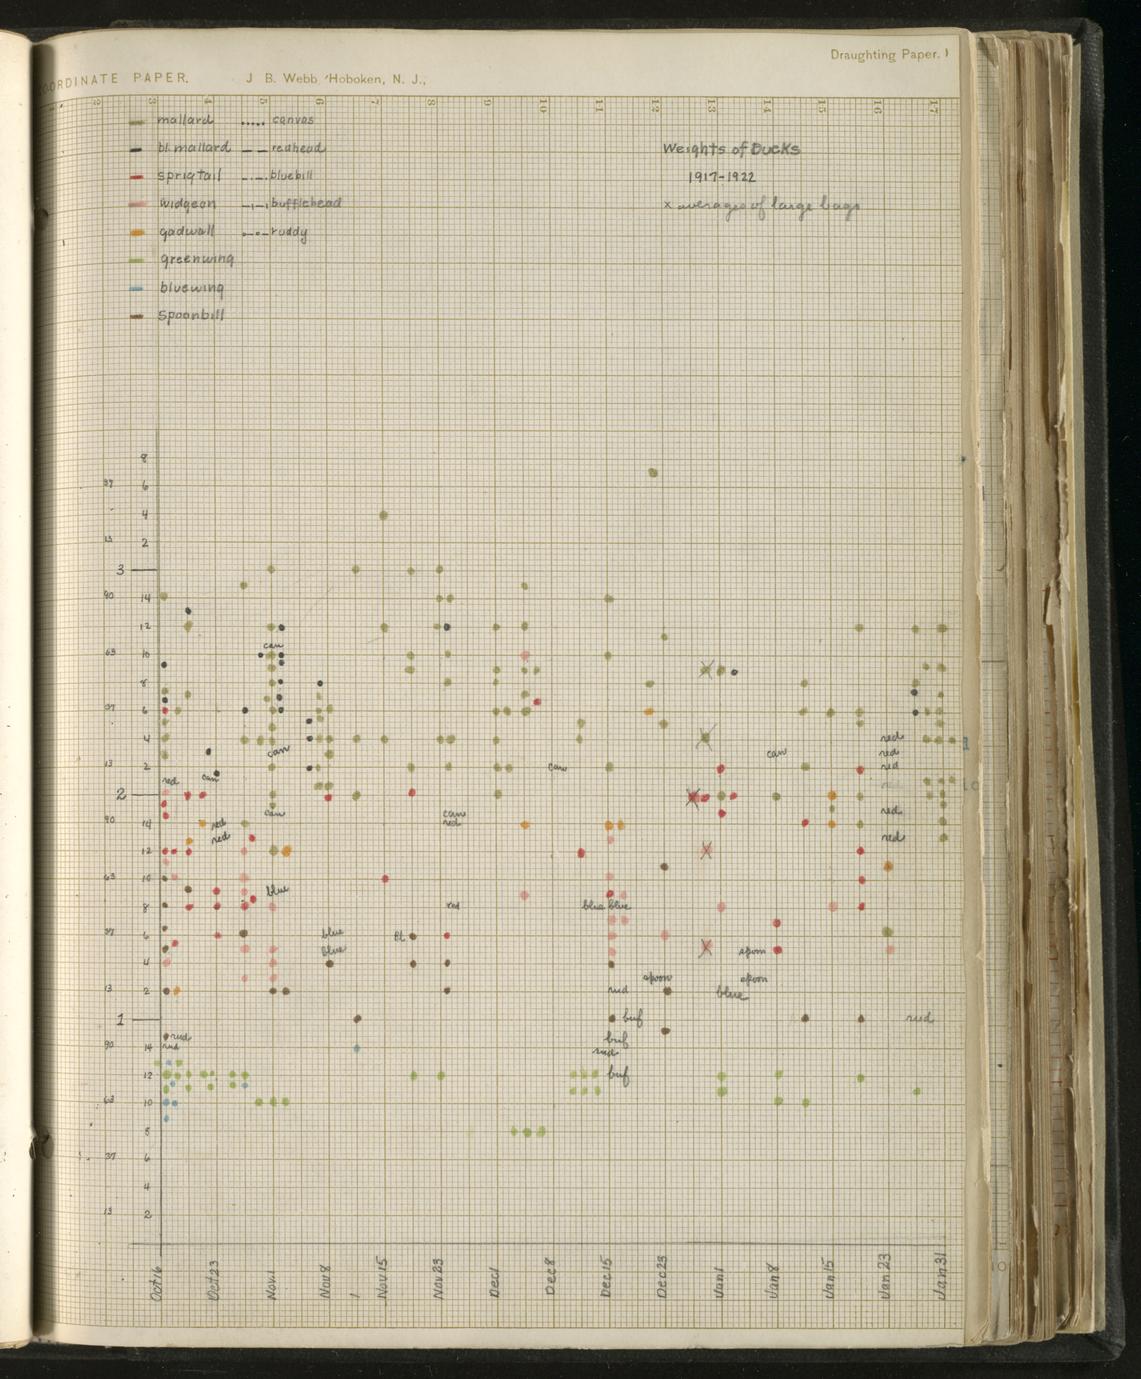 ORDINATE PAPER. J B. Webb, Hoboken, N. J.,
Draughting Paper.
2 3 4 5 6 7 8 9 10 11 12 13 14 15 16 17
mallard canvas
bl. mallard redhead
sprigtail bluebill
widgeon bufflehead
gadwall ruddy
greenwing
bluewing
spoonbill
Weights of Ducks
1917-1922
x averages of large bags
8
37 6
4
13 2
3
90 14
12
can
63 10
8
37 6
red
4
can can red
13 2 can red
red can
2
can can red
90 14 red red
red red
12
63 10
blue
8 red blue blue
37 6 blue Bl
blue spoon
4
spoon spoon
13 2 rud blue
1 buf rud
rud buf
90 14 rud rud
12 buf
63 10
8
37 6
4
13 2
Oct 16 Oct 23 Nov. 1 Nov 8 Nov 15 Nov 23 Dec 1 Dec 8 Dec 15 Dec 23 Jan 1 Jan 8 Jan 15 Jan 23 Jan 31